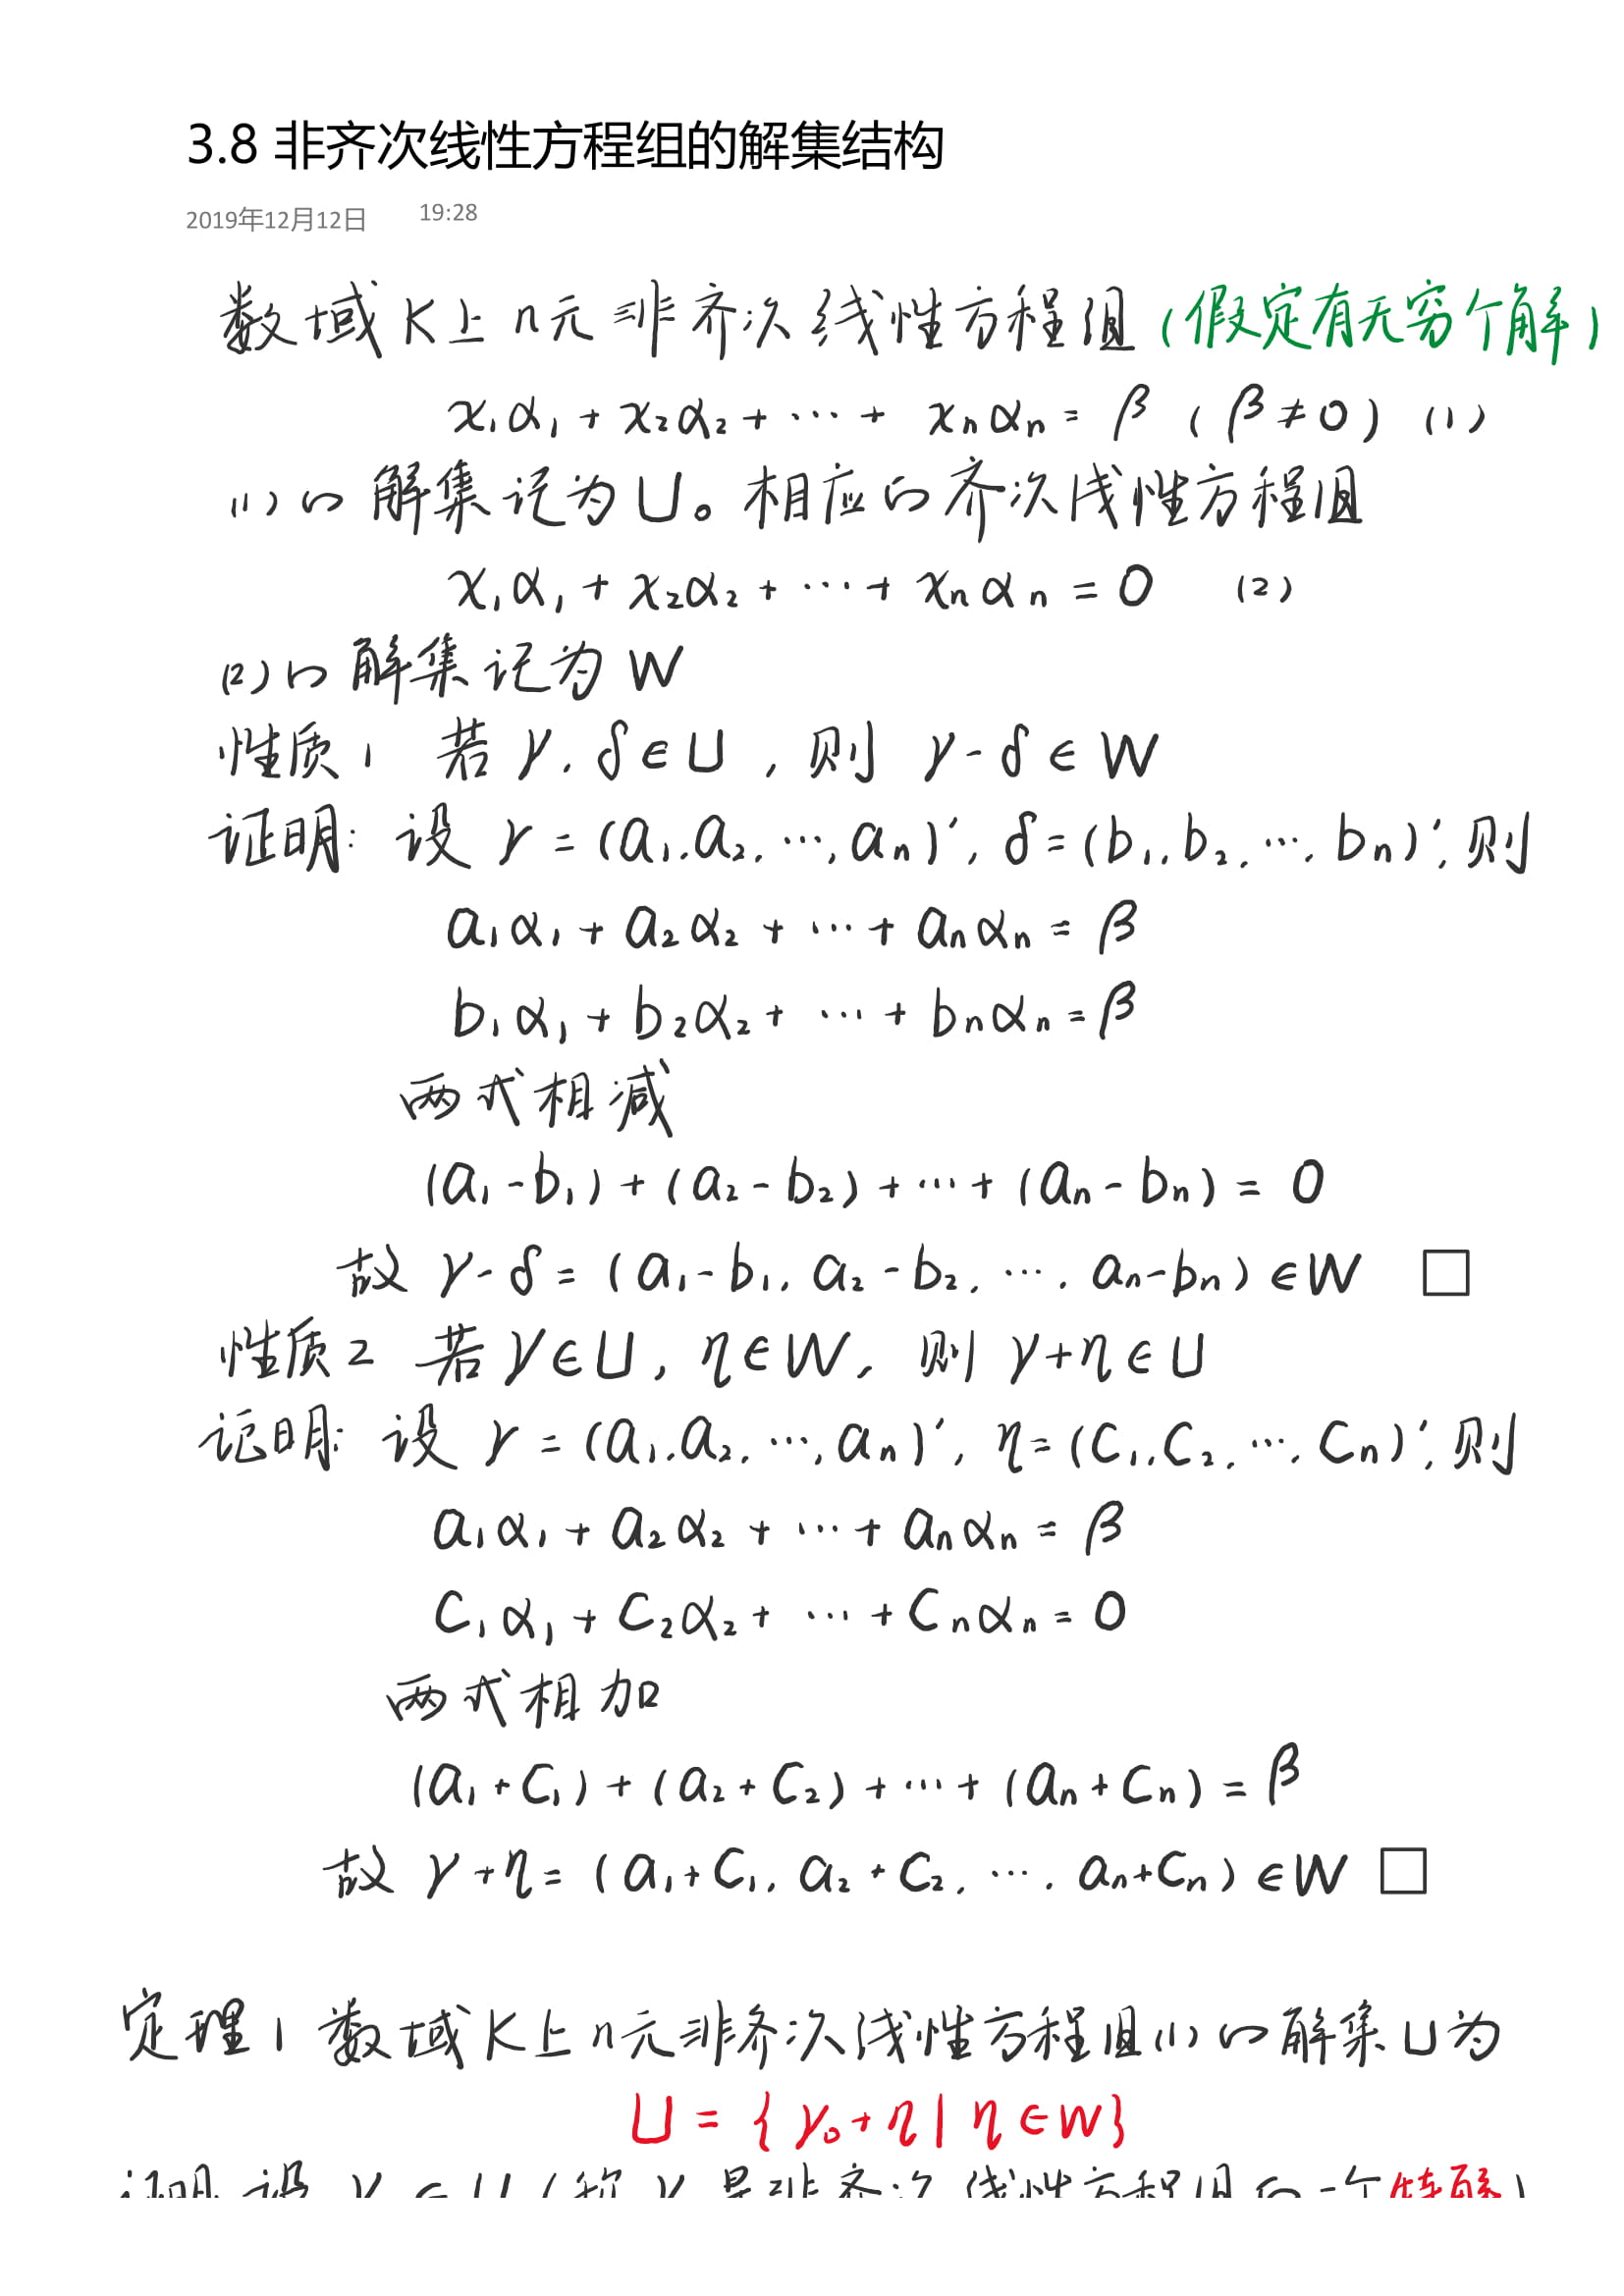 3.8 非齐次线性方程组的解集结构
2019年12月12日 19:28
数域 K上 n元 非齐次 线性方程组 (假定有无穷个解)
x₁α₁ + x₂α₂ + ⋯ + xₙαₙ = β ( β ≠ 0 ) (1)
(1) 的 解集记为 U。相应的齐次线性方程组
x₁α₁ + x₂α₂ + ⋯ + xₙαₙ = 0 (2)
(2) 的 解集记为 W
性质1 若 γ, δ ∈ U , 则 γ - δ ∈ W
证明: 设 γ = (a₁, a₂, ⋯, aₙ)', δ = (b₁, b₂, ⋯, bₙ)', 则
a₁α₁ + a₂α₂ + ⋯ + aₙαₙ = β
b₁α₁ + b₂α₂ + ⋯ + bₙαₙ = β
两式相减
(a₁ - b₁) + (a₂ - b₂) + ⋯ + (aₙ - bₙ) = 0
故 γ - δ = (a₁ - b₁, a₂ - b₂, ⋯, aₙ - bₙ) ∈ W □
性质2 若 γ ∈ U, η ∈ W, 则 γ + η ∈ U
证明: 设 γ = (a₁, a₂, ⋯, aₙ)', η = (c₁, c₂, ⋯, cₙ)', 则
a₁α₁ + a₂α₂ + ⋯ + aₙαₙ = β
c₁α₁ + c₂α₂ + ⋯ + cₙαₙ = 0
两式相加
(a₁ + c₁) + (a₂ + c₂) + ⋯ + (aₙ + cₙ) = β
故 γ + η = (a₁ + c₁, a₂ + c₂, ⋯, aₙ + cₙ) ∈ W □
定理1 数域K上 n元非齐次线性方程组(1) 的 解集 U为
U = { γ₀ + η | η ∈ W}
证明 设 γ ∈ U (称 γ 是非齐次线性方程组的一个特解)